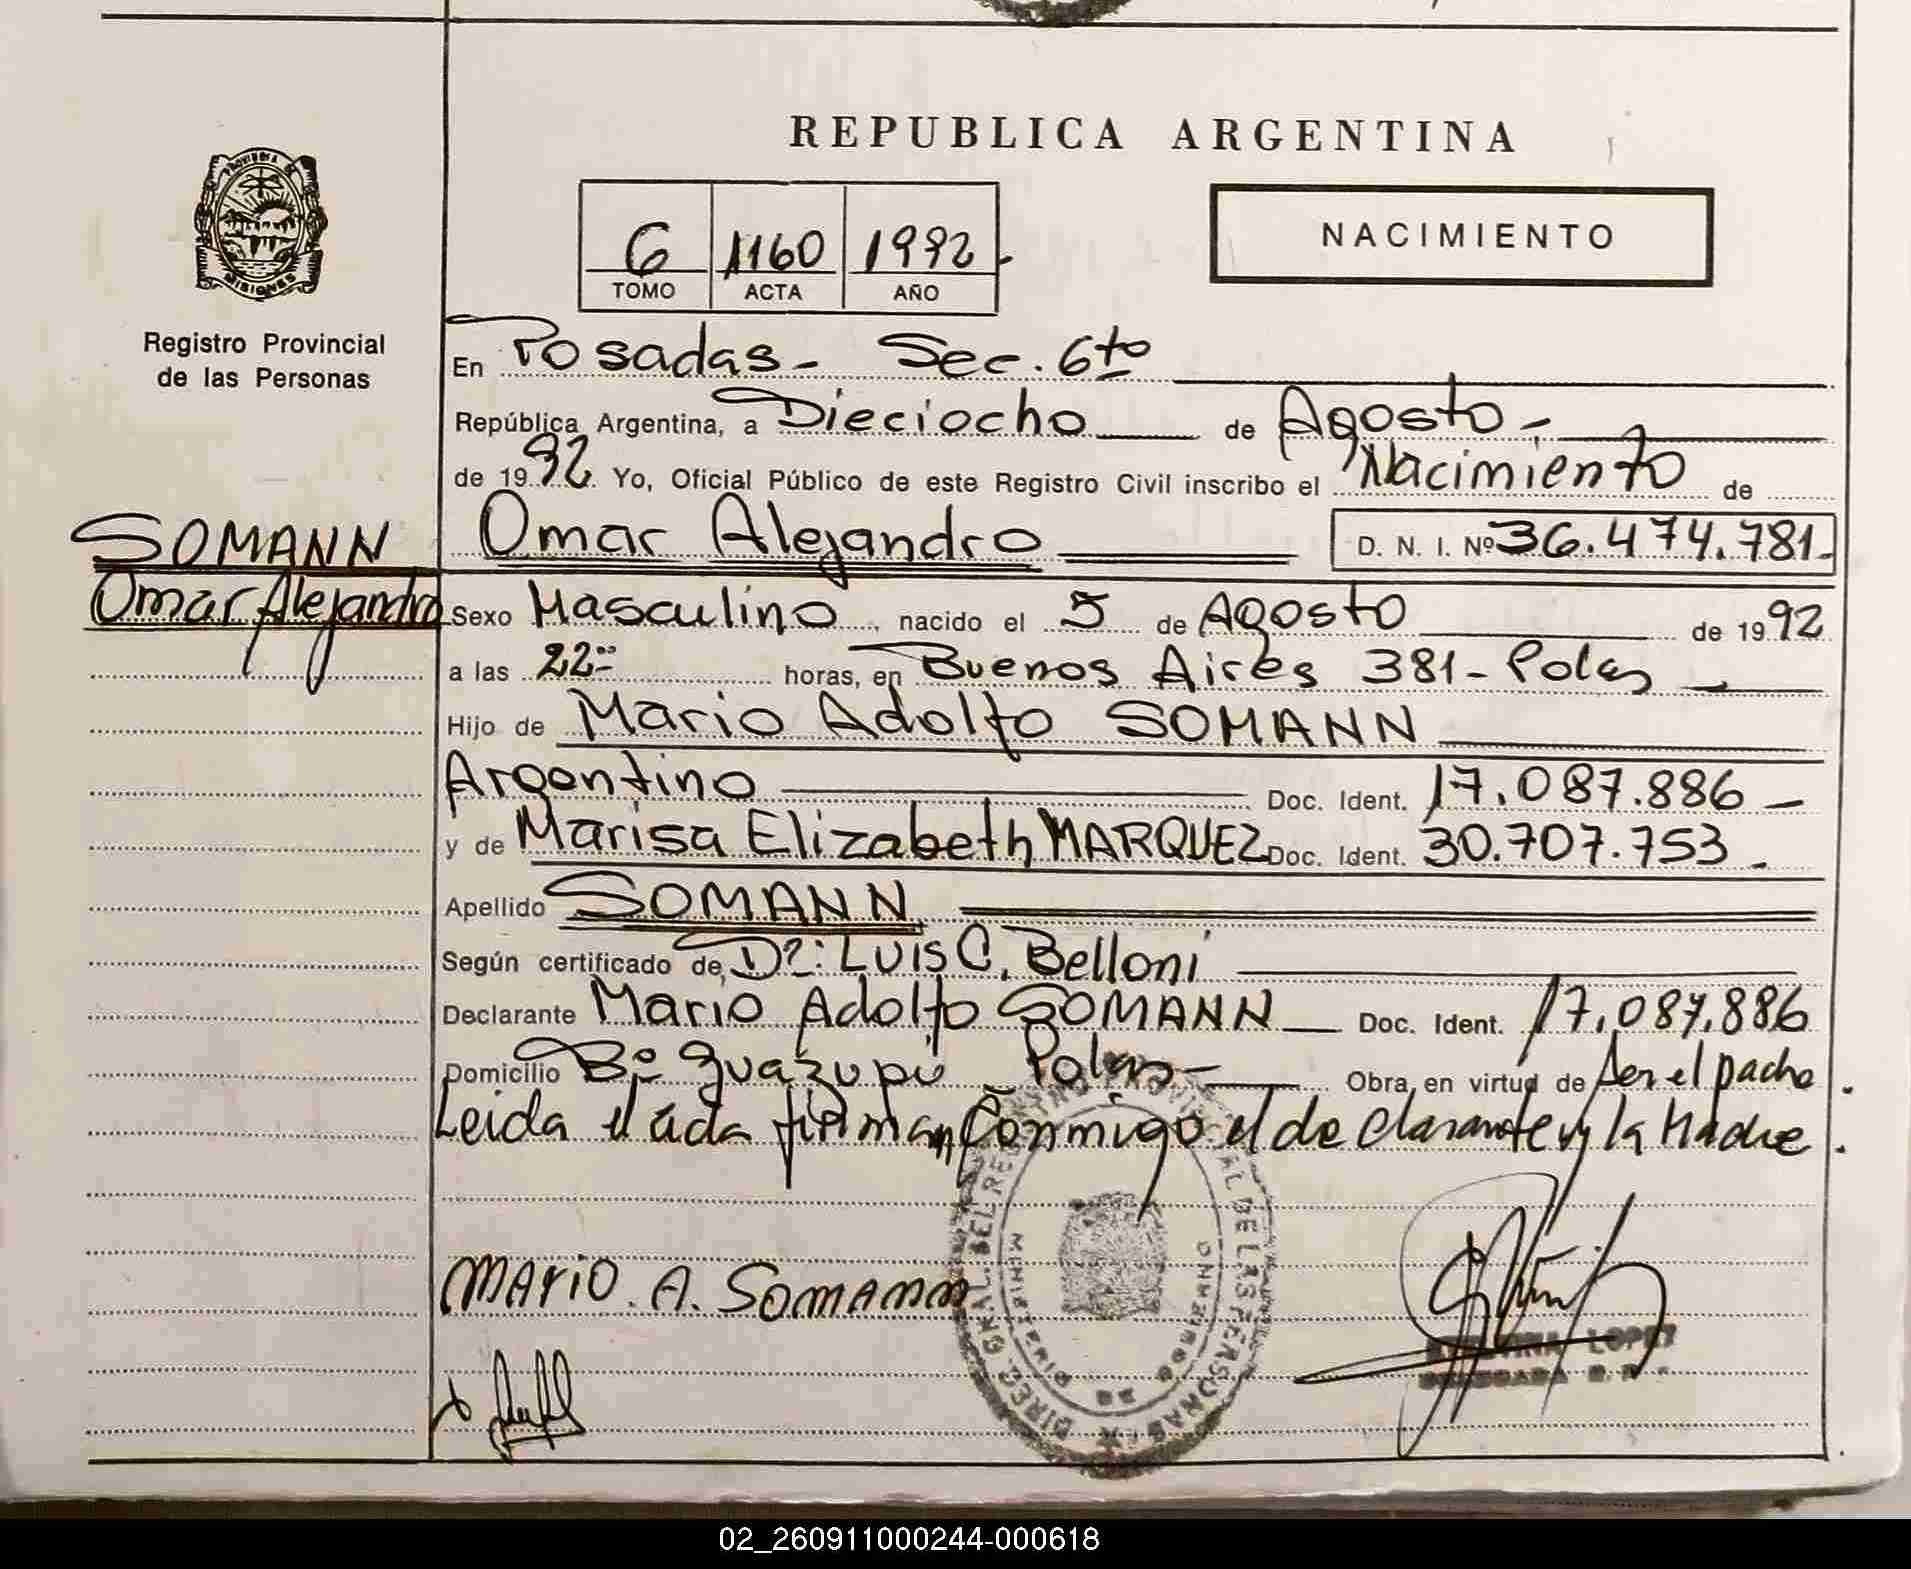 REPUBLICA ARGENTINA
PROVINCIA DE
MISIONES
Registro Provincial
de las Personas
6 1160 1992
TOMO ACTA AÑO
NACIMIENTO
En Posadas - Sec. 6to
República Argentina, a Dieciocho de Agosto -
de 1992 Yo, Oficial Público de este Registro Civil inscribo el Nacimiento de
SOMANN
Omar Alejandro
Omar Alejandro D. N. I. Nº 36.474.781-
Sexo Masculino, nacido el 5 de Agosto de 1992
a las 22 horas, en Buenos Aires 381 - Pdas
Hijo de Mario Adolfo SOMANN
Argentino Doc. Ident. 17.087.886 -
y de Marisa Elizabeth MARQUEZ Doc. Ident. 30.707.753 -
Apellido SOMANN
Según certificado de, Dr: LUIS C. Belloni
Declarante Mario Adolfo SOMANN Doc. Ident. 17.087.886
Domicilio Bº Guazupí Pdas - Obra, en virtud de ser el padre.
Leida el acta firman conmigo el declarante y la Madre.
MARIO. A. SOMANN
DIREC. GRAL. DEL REGISTRO PROVINCIAL DE LAS PERSONAS
MINISTERIO DE GOBIERNO
LOPEZ
02_260911000244-000618